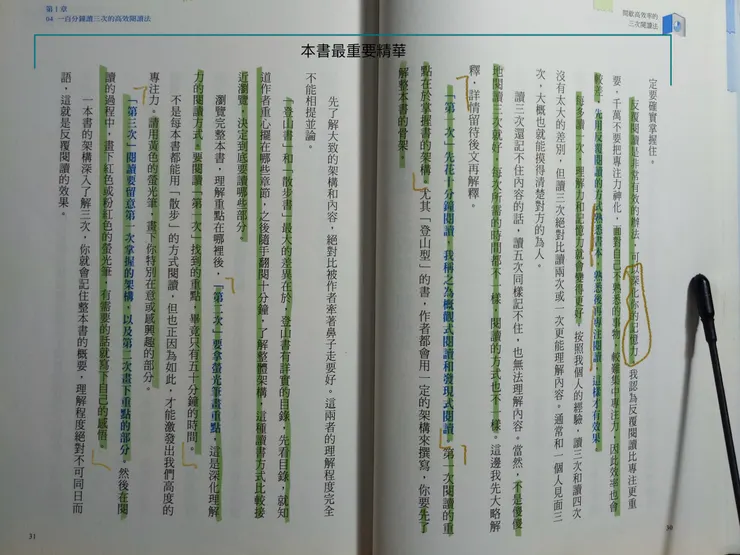 第1章
04 一百分鐘讀三次的高效閱讀法
間歇高效率的
三次閱讀法
本書最重要精華
定要確實掌握住。
反覆閱讀是非常有效的辦法，可以深化你的記憶力。我認為反覆閱讀比專注更重
要，千萬不要把專注力神化，面對自己不熟悉的事物，較難集中專注力，因此效率也會
較差。先用反覆閱讀的方式熟悉書本，熟悉後再專注閱讀，這樣才有效果。
每多讀一次，理解力和記憶力就會變得更好。按照我個人的經驗，讀三次和讀四次
沒有太大的差別，但讀三次絕對比讀兩次或一次更能理解內容。通常和一個人見面三
次，大概也就能摸得清楚對方的為人。
讀三次還記不住內容的話，讀五次同樣記不住，也無法理解內容。當然，不是傻傻
地閱讀三次就好，每次所需的時間都不一樣，閱讀的方式也不一樣。這邊我先大略解
釋，詳情留待後文再解釋。
「第一次」先花十分鐘閱讀，我稱之為概觀式閱讀和發現式閱讀。第一次閱讀的重
點在於掌握書的架構。尤其「登山型」的書，作者都會用一定的架構來撰寫，你要先了
解整本書的骨架。
30
先了解大致的架構和內容，絕對比被作者牽著鼻子走要好。這兩者的理解程度完全
不能相提並論。
「登山書」和「散步書」最大的差異在於，登山書有詳實的目錄，先看目錄，就知
道作者重心擺在哪些章節，之後隨手翻閱十分鐘，了解整體架構，這種讀書方式比較接
近瀏覽，決定到底要讀哪些部分。
瀏覽完整本書，理解重點在哪裡後，「第二次」要拿螢光筆畫重點，這是深化理解
力的閱讀方式。要閱讀「第一次」找到的重點，畢竟只有五十分鐘的時間。
不是每本書都能用「散步」的方式閱讀，但也正因為如此，才能激發出我們高度的
專注力。請用黃色的螢光筆，畫下你特別在意或感興趣的部分。
「第三次」閱讀要留意第一次掌握的架構，以及第二次畫下重點的部分。然後在閱
讀的過程中，畫下紅色或粉紅色的螢光筆，有需要的話就寫下自己的感悟。
一本書的架構深入了解三次，你就會記住整本書的概要，理解程度絕對不可同日而
語，這就是反覆閱讀的效果。
31